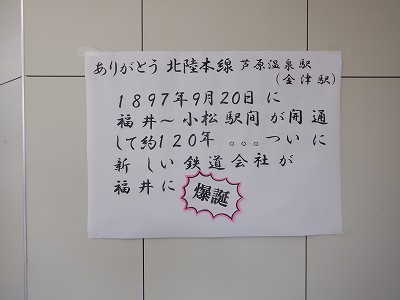 ありがとう 北陸本線 芦原温泉駅
(金津駅)
1897年9月20日に
福井～小松駅間が開通
して約120年 。。。ついに
新しい鉄道会社が
福井に 爆誕